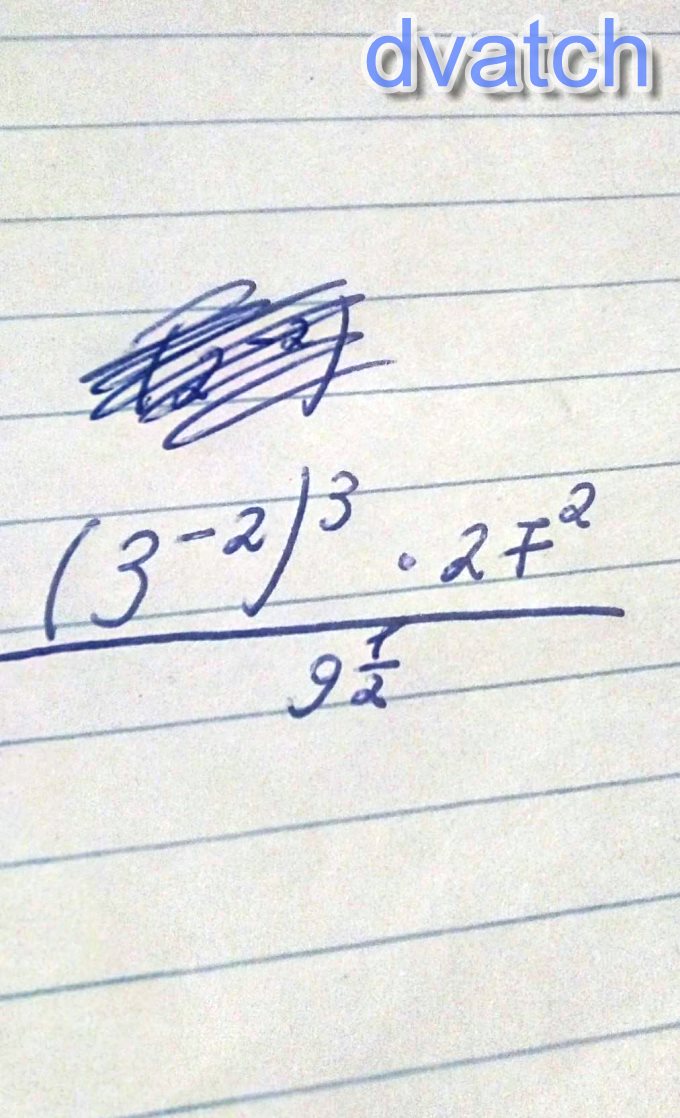 dvatch
(3⁻²)³ · 27²
9^{1/2}